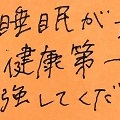 睡眠が
健康第一
強してくだ